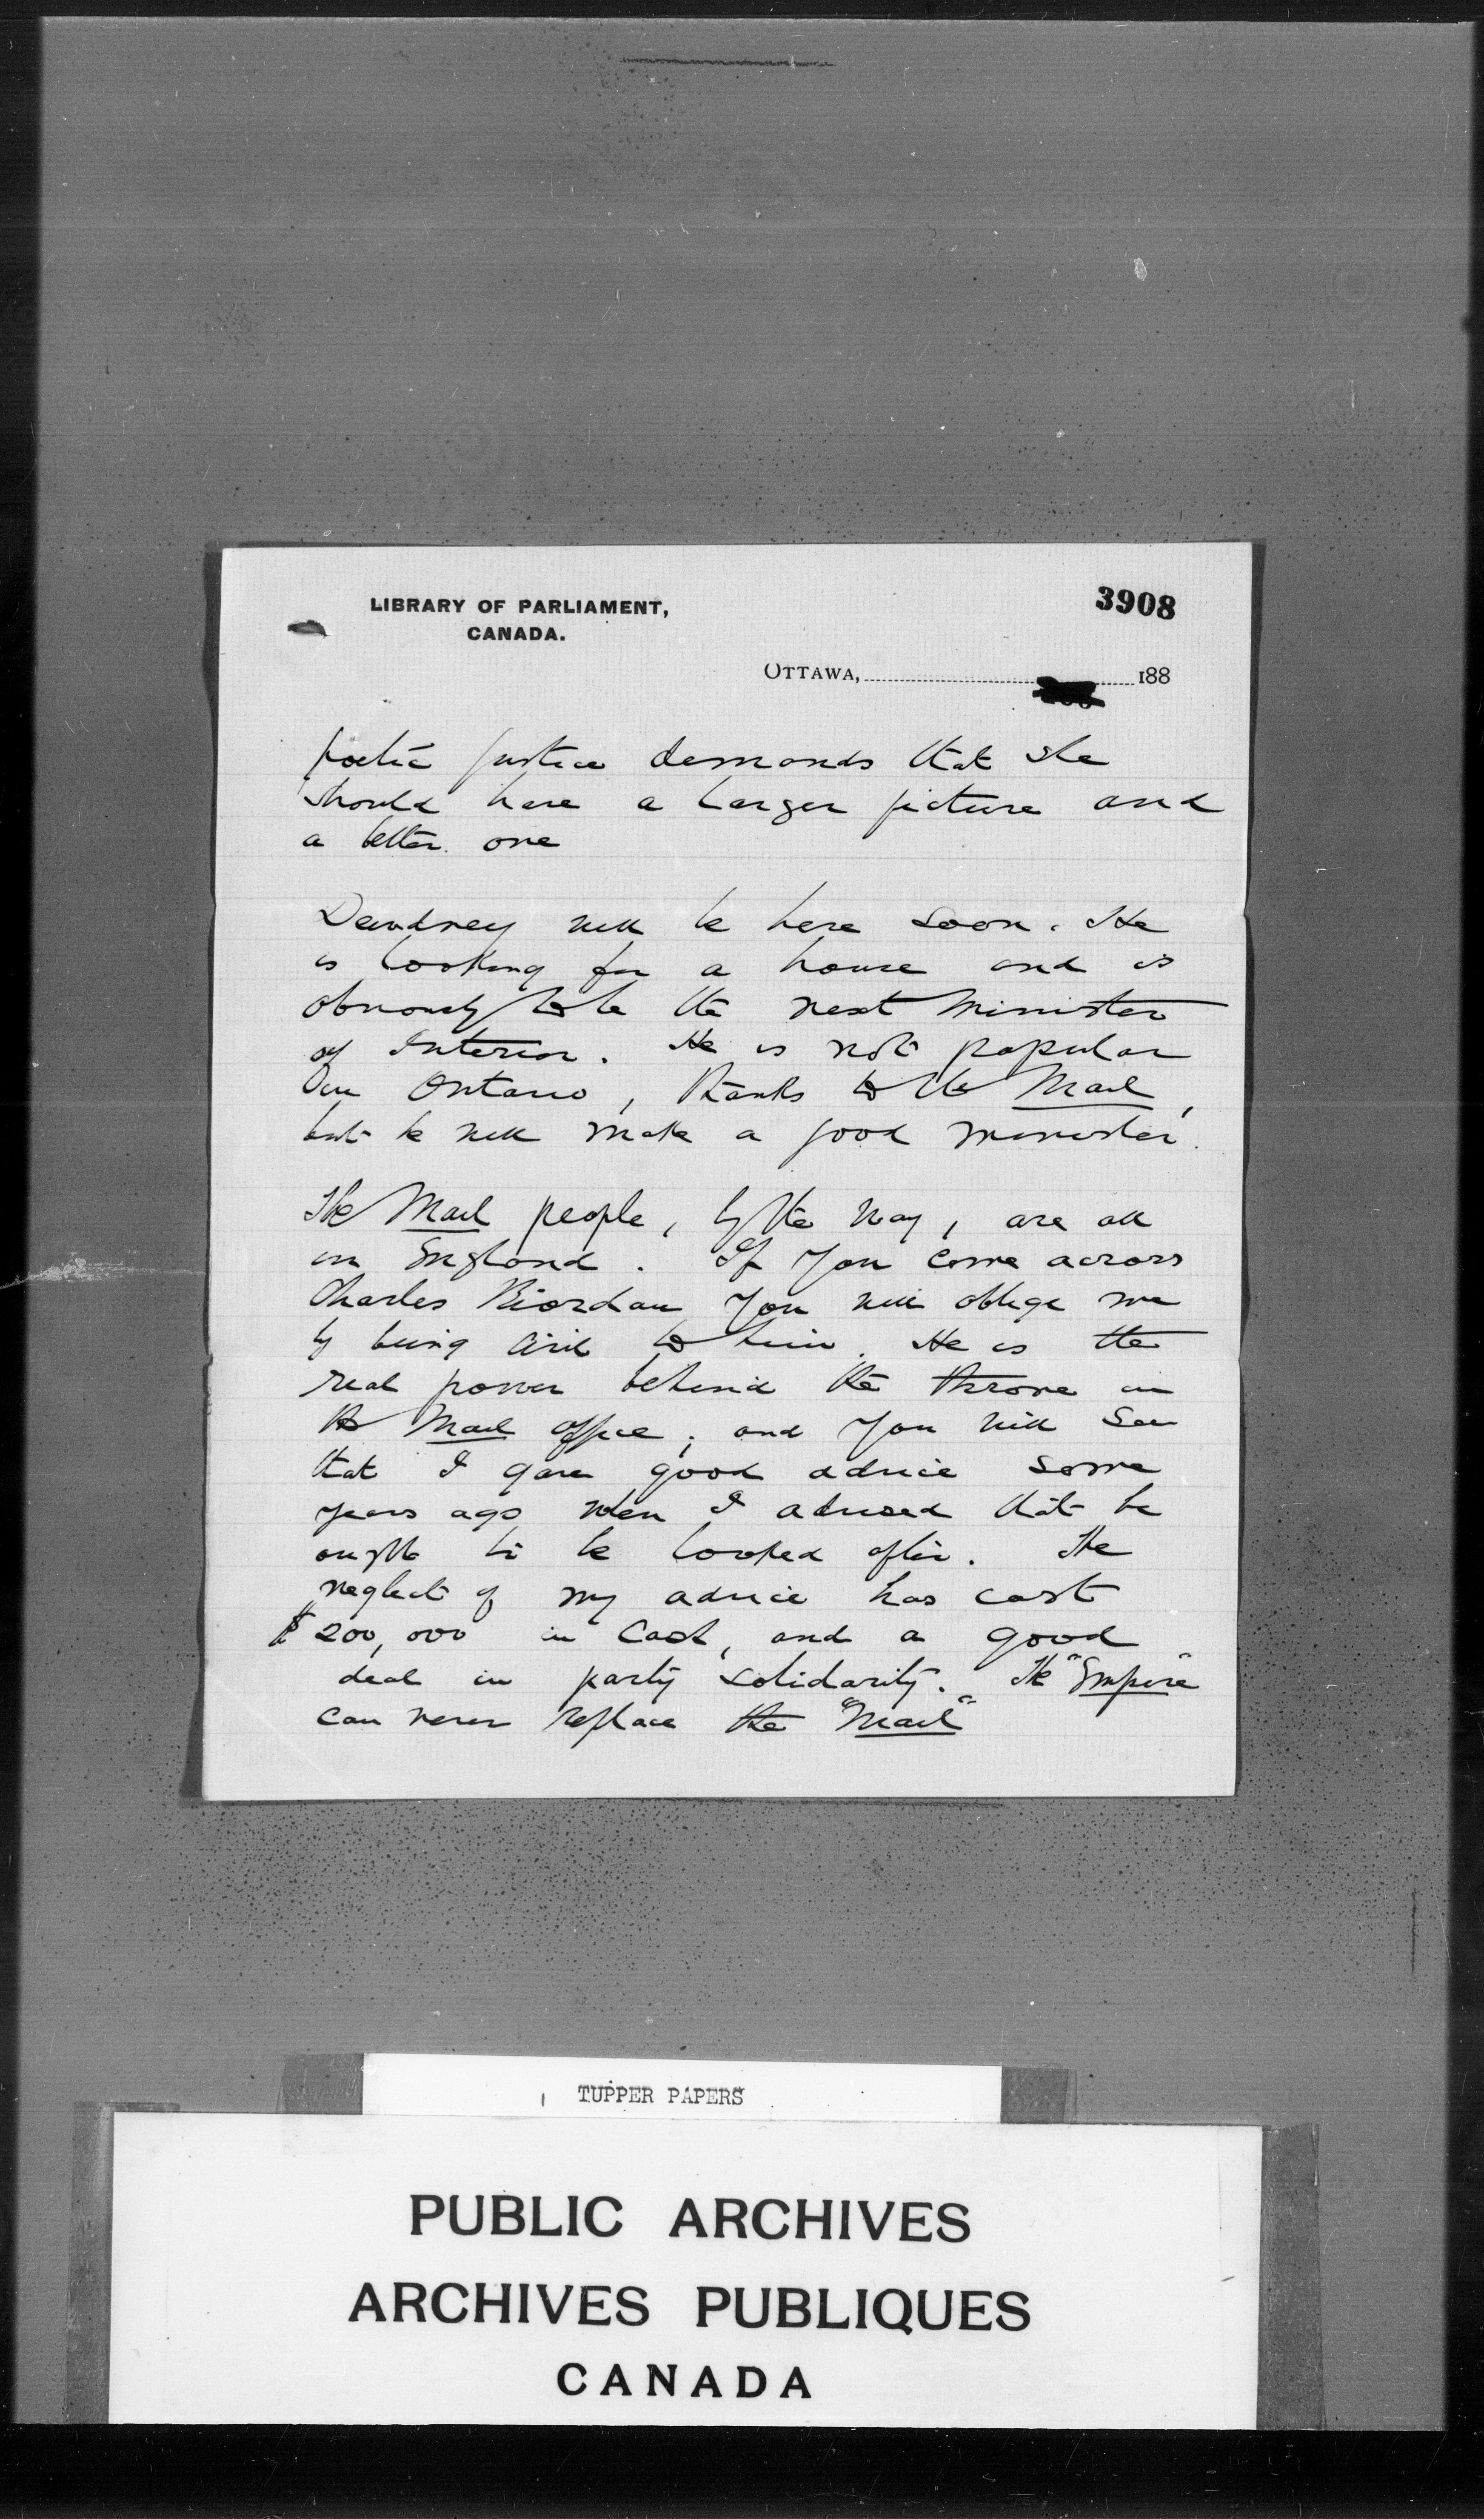 LIBRARY OF PARLIAMENT,
CANADA.
3908
OTTAWA, 188
poetic justice demands that she
should have a larger picture and
a better one
Dewdney will be here soon. He
is looking for a house and is
obviously to be the next Minister
of Interior. He is not popular
in Ontario, thanks to the Mail,
but he will make a good minister.
The Mail people, by the way, are all
in England. If you come across
Charles Riordan you will oblige me
by being civil to him. He is the
real power behind the throne in
the Mail office; and you will see
that I gave good advice some
years ago when I advised that he
ought to be looked after. The
neglect of my advice has cost
$200,000 in cash, and a good
deal in party solidarity. The "Empire"
can never replace the "Mail"
TUPPER PAPERS
PUBLIC ARCHIVES
ARCHIVES PUBLIQUES
CANADA